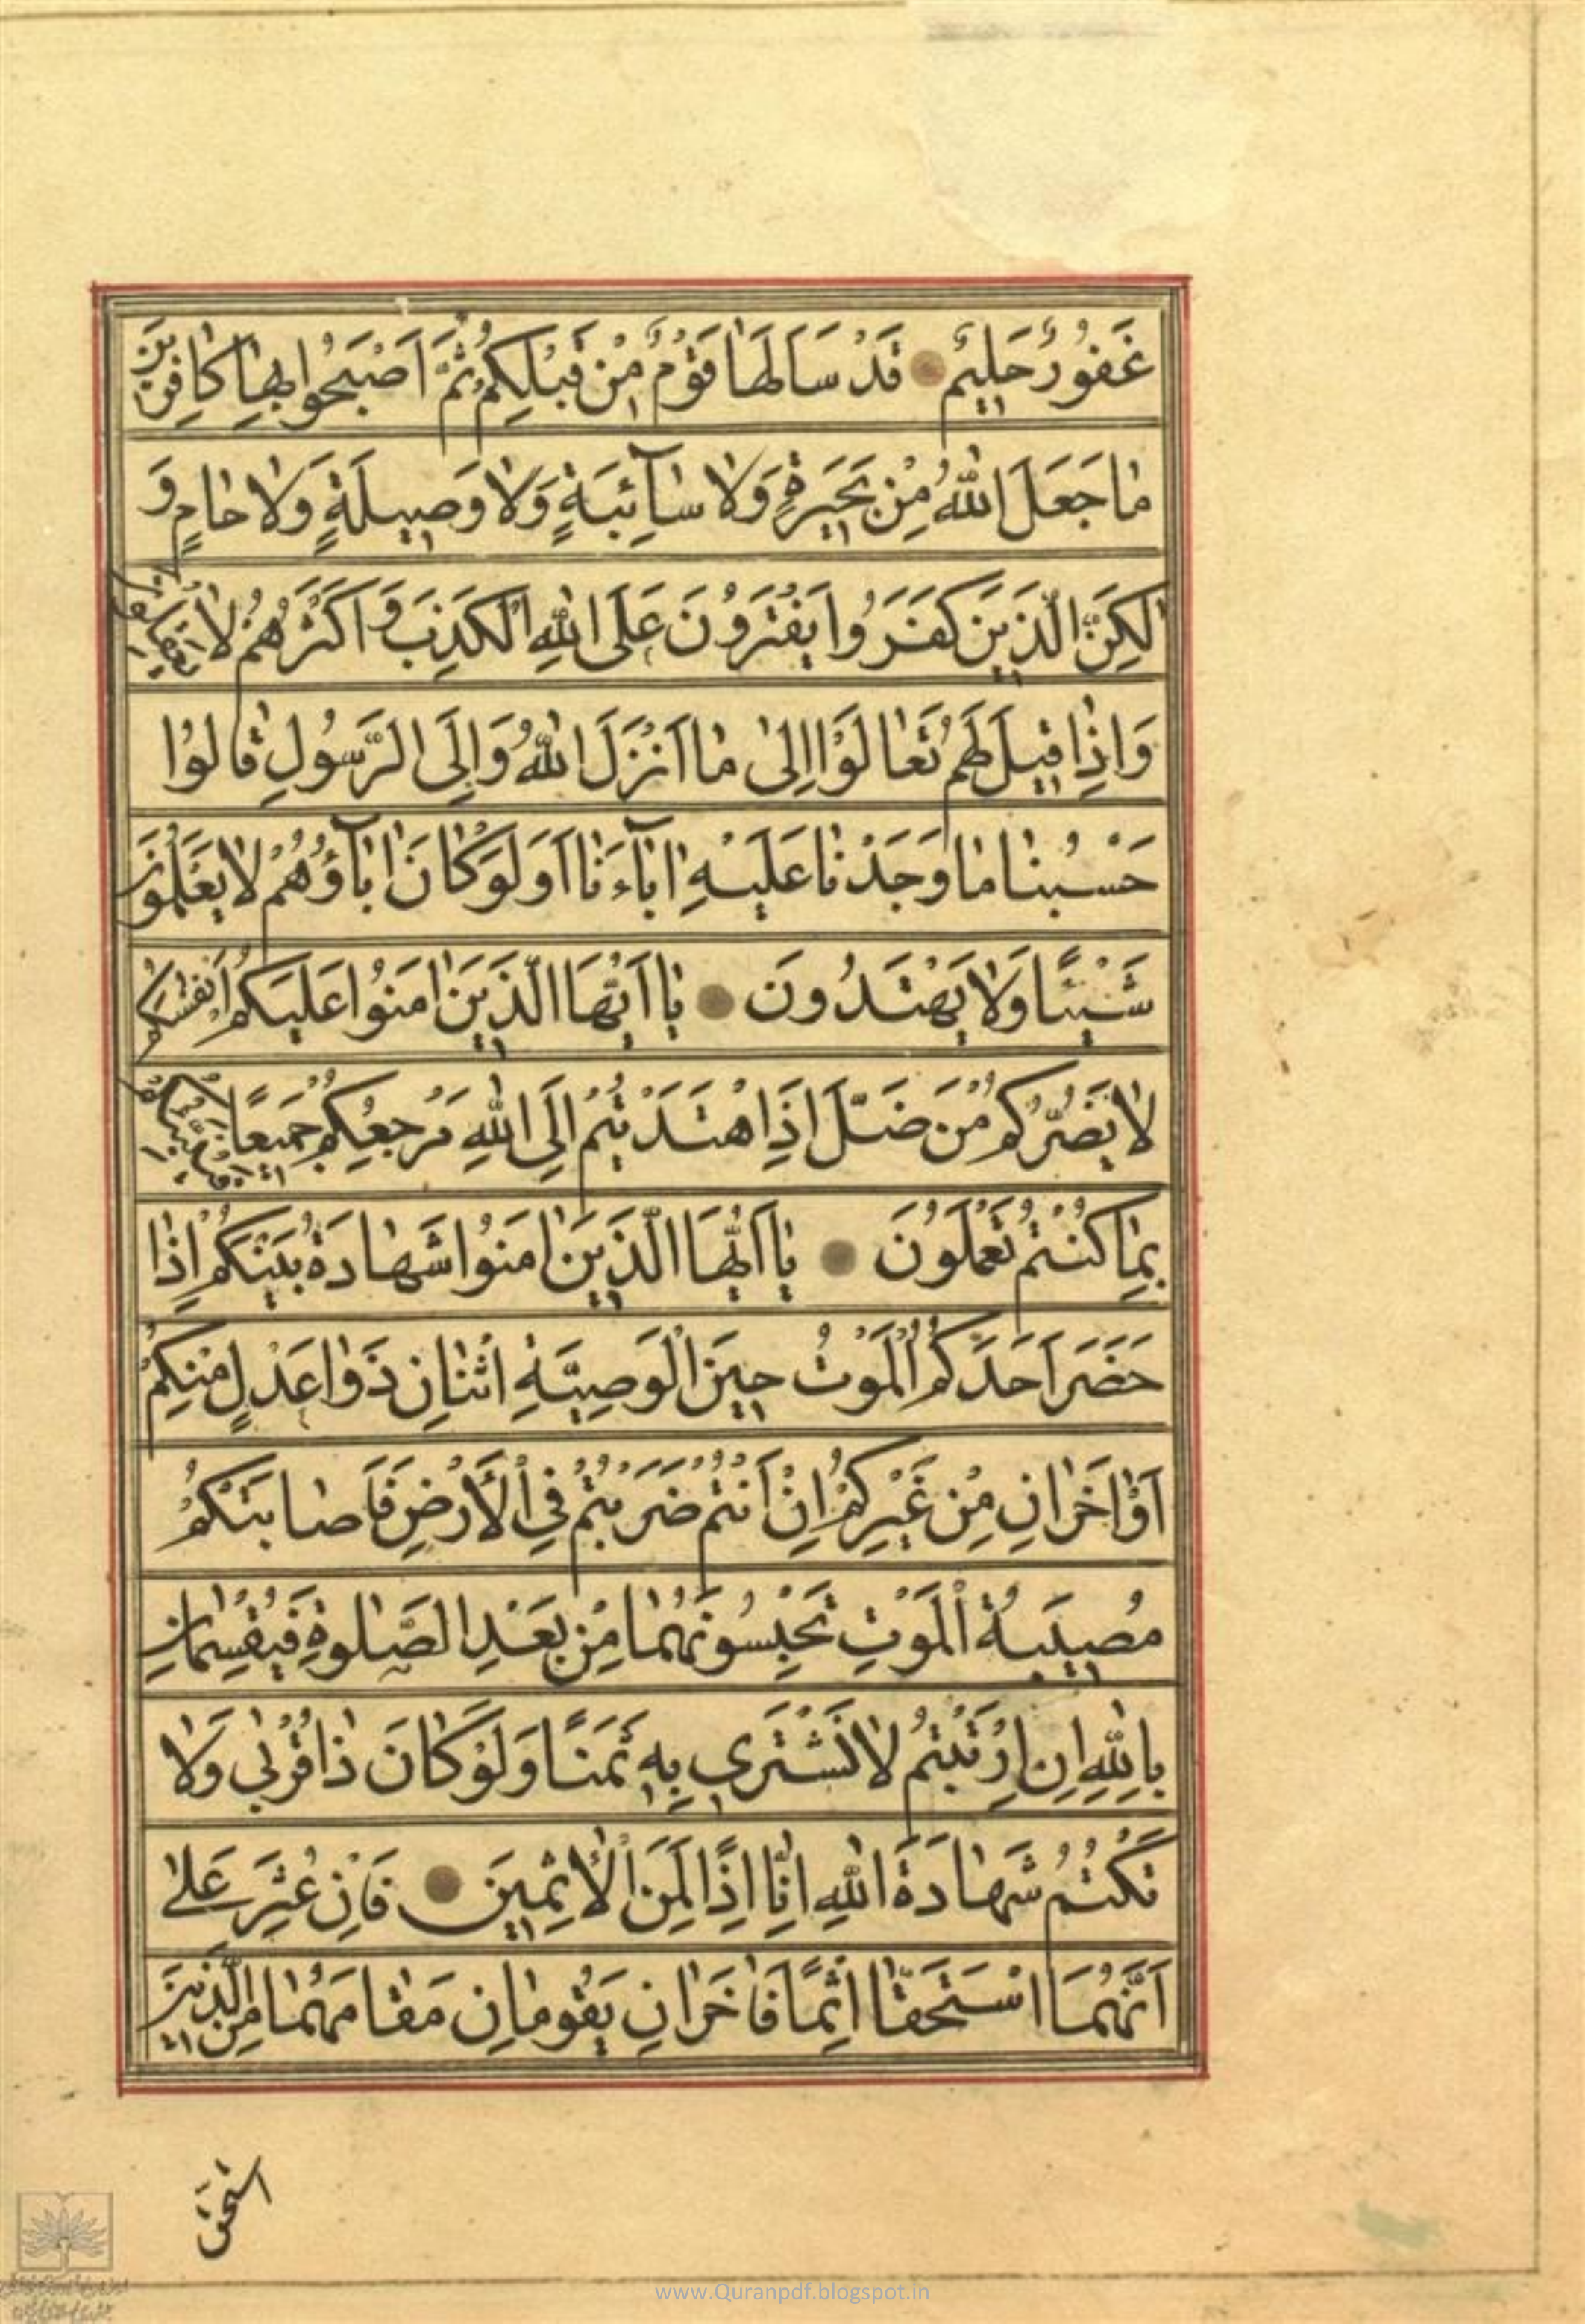 غَفُورٌ حَلِيمٌ ● قَدْ سَاَلَهَا قَوْمٌ مِنْ قَبْلِكُمْ ثُمَّ اَصْبَحُوا بِهَا كَافِرِينَ
مَا جَعَلَ اللّٰهُ مِنْ بَحِيرَةٍ وَلَا سَآئِبَةٍ وَلَا وَصِيلَةٍ وَلَا حَامٍ وَ
لٰكِنَّ الَّذِينَ كَفَرُوا يَفْتَرُونَ عَلَى اللّٰهِ الْكَذِبَ وَاَكْثَرُهُمْ لَا يَعْقِلُونَ
وَاِذَا قِيلَ لَهُمْ تَعَالَوْا اِلٰى مَا اَنْزَلَ اللّٰهُ وَاِلَى الرَّسُولِ قَالُوا
حَسْبُنَا مَا وَجَدْنَا عَلَيْهِ اٰبَآءَنَا اَوَلَوْ كَانَ اٰبَآؤُهُمْ لَا يَعْلَمُونَ
شَيْئًا وَلَا يَهْتَدُونَ ● يَا اَيُّهَا الَّذِينَ اٰمَنُوا عَلَيْكُمْ اَنْفُسَكُمْ
لَا يَضُرُّكُمْ مَنْ ضَلَّ اِذَا اهْتَدَيْتُمْ اِلَى اللّٰهِ مَرْجِعُكُمْ جَمِيعًا فَيُنَبِّئُكُمْ
بِمَا كُنْتُمْ تَعْمَلُونَ ● يَا اَيُّهَا الَّذِينَ اٰمَنُوا شَهَادَةُ بَيْنِكُمْ اِذَا
حَضَرَ اَحَدَكُمُ الْمَوْتُ حِينَ الْوَصِيَّةِ اثْنَانِ ذَوَا عَدْلٍ مِنْكُمْ
اَوْ اٰخَرَانِ مِنْ غَيْرِكُمْ اِنْ اَنْتُمْ ضَرَبْتُمْ فِي الْاَرْضِ فَاَصَابَتْكُمْ
مُصِيبَةُ الْمَوْتِ تَحْبِسُونَهُمَا مِنْ بَعْدِ الصَّلٰوةِ فَيُقْسِمَانِ
بِاللّٰهِ اِنِ ارْتَبْتُمْ لَا نَشْتَرِي بِهِ ثَمَنًا وَلَوْ كَانَ ذَا قُرْبٰى وَلَا
نَكْتُمُ شَهَادَةَ اللّٰهِ اِنَّا اِذًا لَمِنَ الْاٰثِمِينَ ● فَاِنْ عُثِرَ عَلٰى
اَنَّهُمَا اسْتَحَقَّا اِثْمًا فَاٰخَرَانِ يَقُومَانِ مَقَامَهُمَا مِنَ الَّذِينَ
اسْتَحَقَّ
www.Quranpdf.blogspot.in